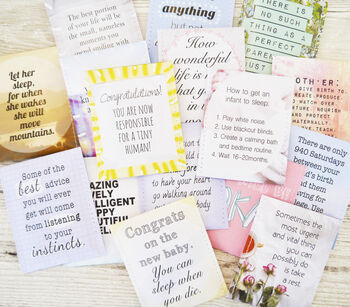 The best portion
of your life will be
the small, nameless
moments you
spend smiling with
anything
but not
THERE IS
NO SUCH
THING AS
A PERFECT
PARENT
JUST
Let her
sleep,
for when
she wakes
she will
move
mountains.
Congratulations!
YOU ARE NOW
RESPONSIBLE
FOR A TINY
HUMAN!
How
wonderful
life is
How to get an
infant to sleep:
1. Play white noise
2. Use blackout blinds
3. Create a calming bath
and bedtime routine
4. Wait 16-20months.
GIVE BIRTH TO
CREATE PRODUCE
TO WATCH
OVER NURTURE
NOURISH AND
PROTECT
There are only
940 Saturdays
between your
birth and
them
for
Some of the
best advice
you will ever
get will come
from listening
to your
instincts.
to have your heart
go walking around
Congrats
on the
new baby.
You can
sleep when
you die.
Sometimes the
most urgent
and vital
thing you can
possibly do
is take
a rest.